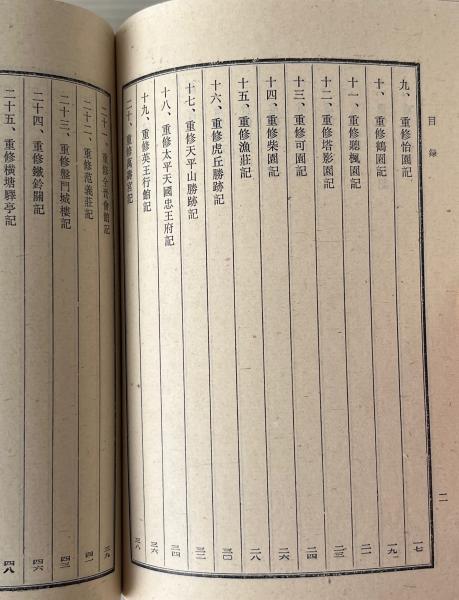 目錄
二
九、重修怡園記 一七
十、重修鶴園記 一九
十一、重修聽楓園記 二一
十二、重修塔影園記 二三
十三、重修可園記 二四
十四、重修柴園記 二六
十五、重修漁莊記 二八
十六、重修虎丘勝跡記 三〇
十七、重修天平山勝跡記 三二
十八、重修太平天國忠王府記 三四
十九、重修英王行館記 三六
二十、重修萬壽宮記 三八
二十一、重修全晉會館記 三九
二十二、重修范義莊記 四一
二十三、重修盤門城樓記 四三
二十四、重修鐵鈴關記 四六
二十五、重修橫塘驛亭記 四八